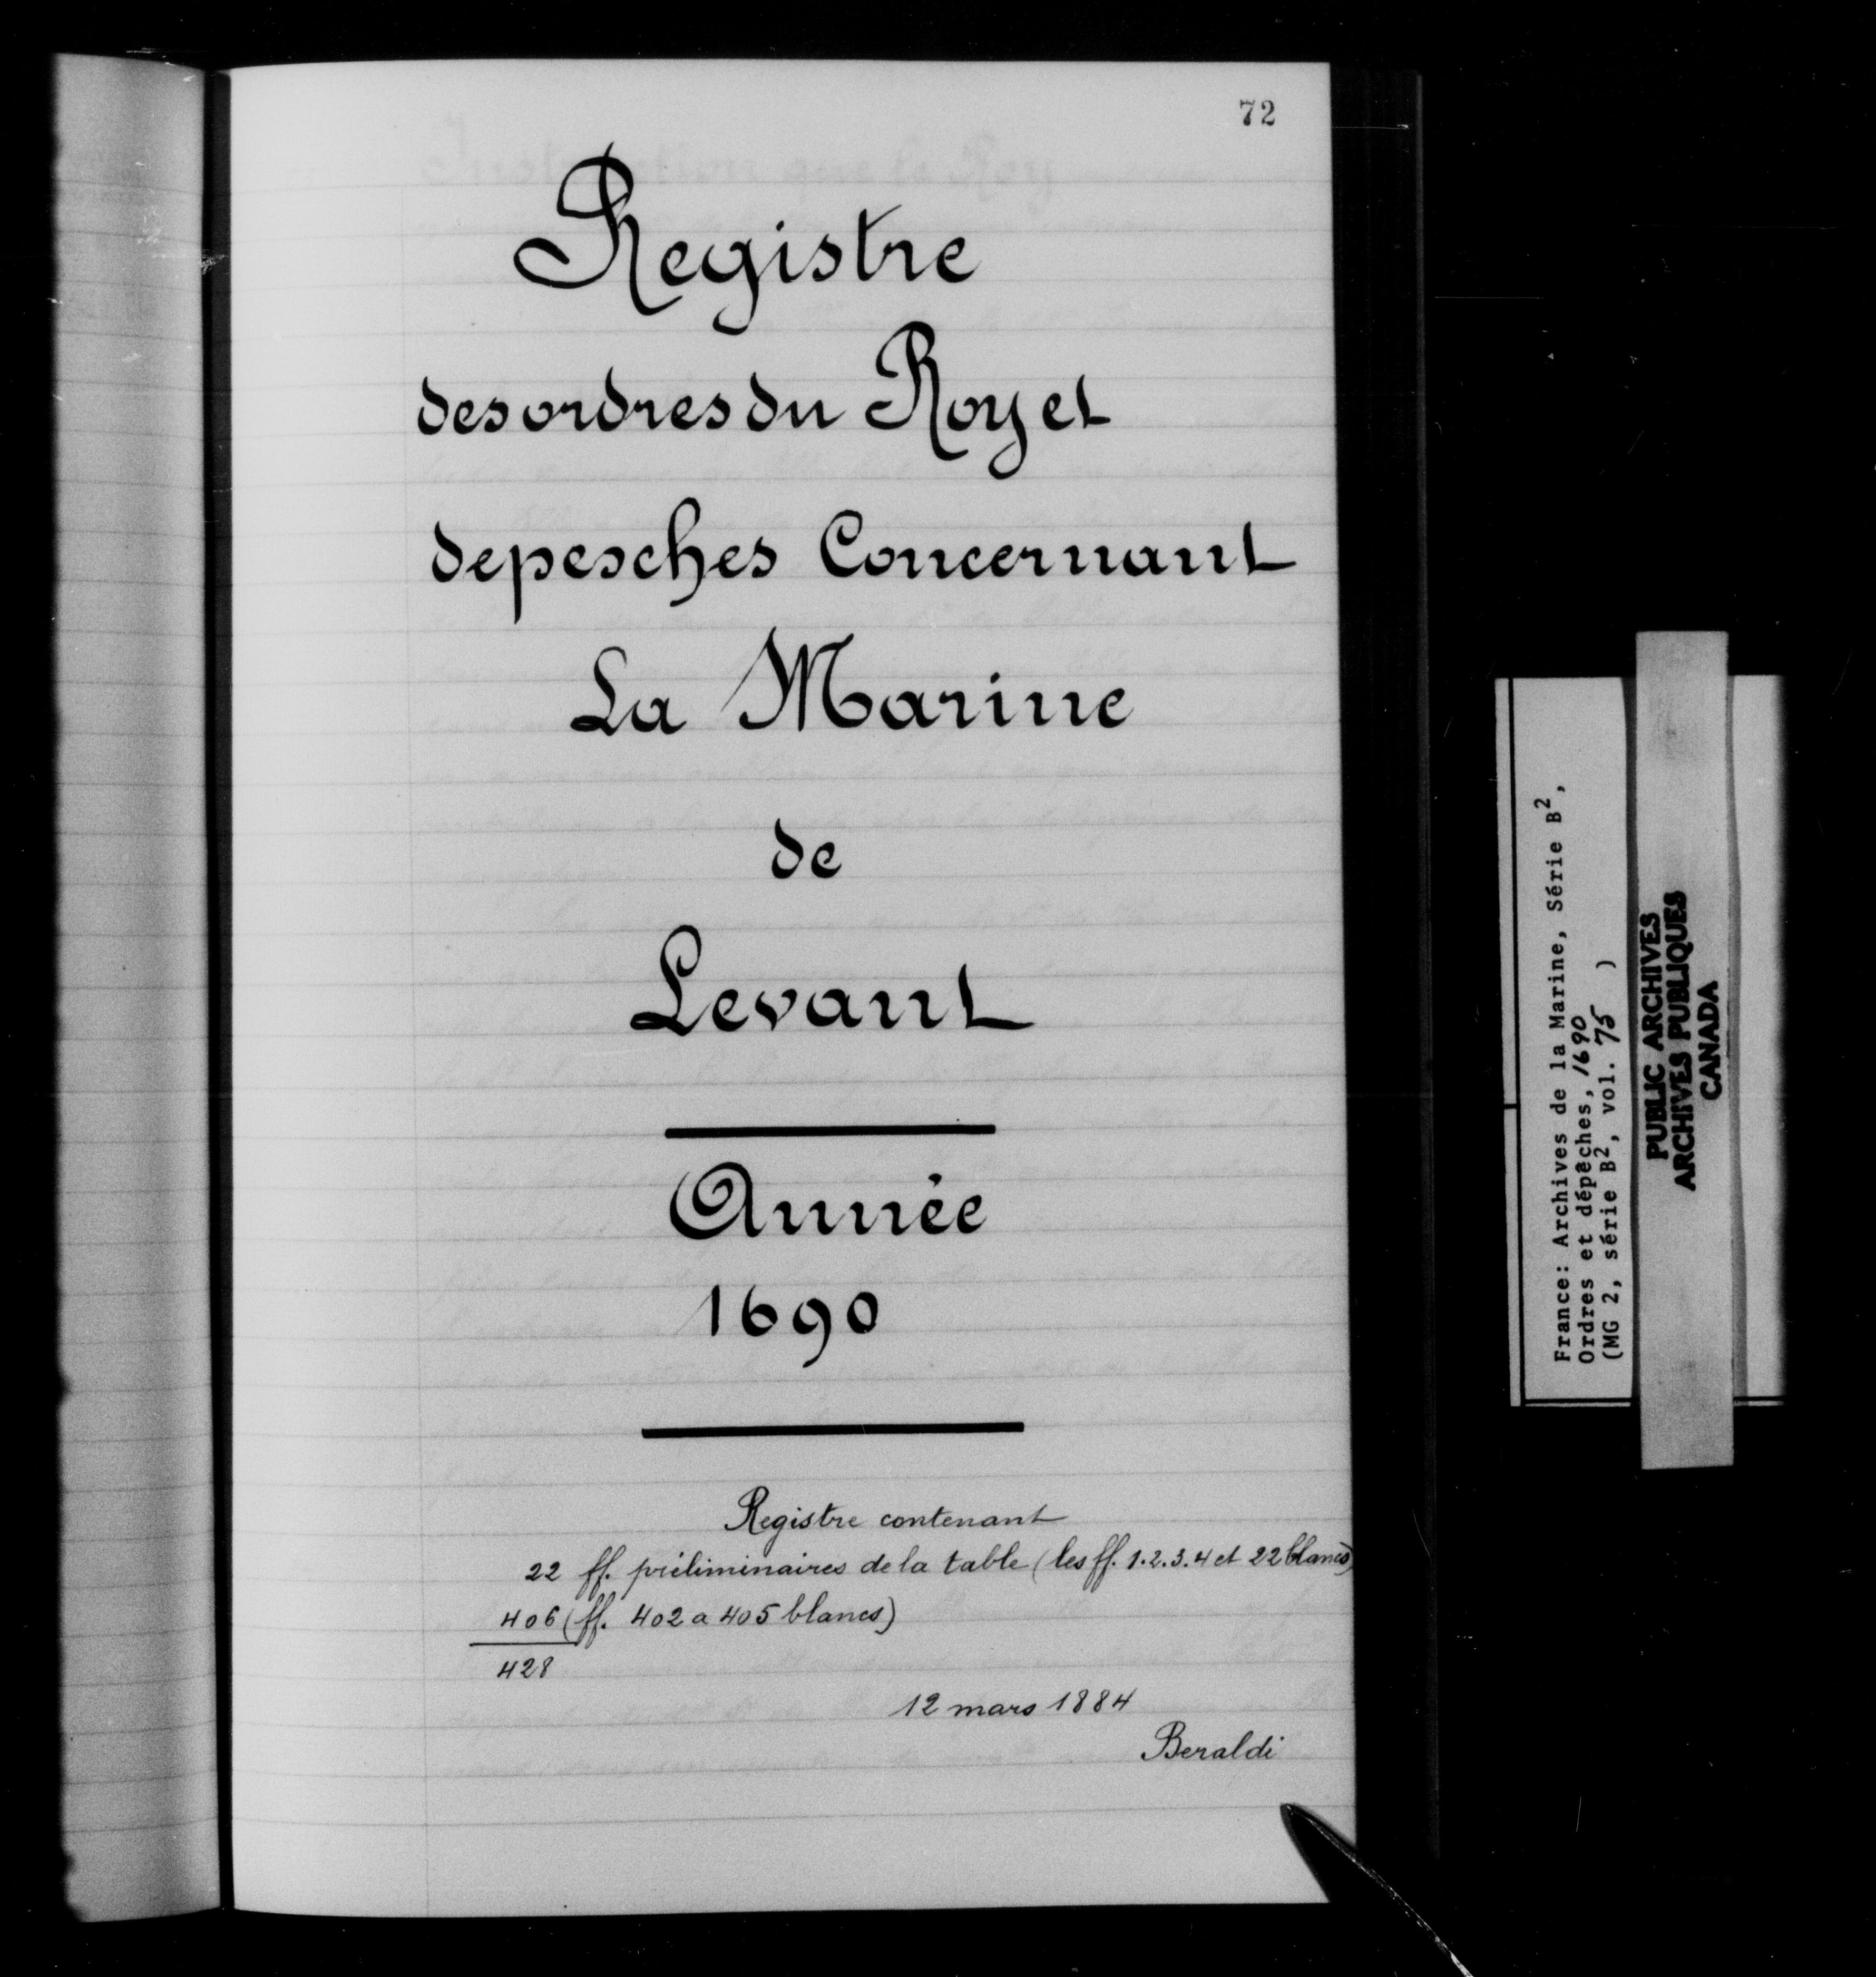 72
Registre
des ordres du Roy et
depesches Concernant
La Marine
de
Levant
Année
1690
Registre contenant
22 ff. préliminaires de la table (les ff. 1.2.3.4 et 22 blancs)
406 (ff. 402 a 405 blancs)
428
12 mars 1884
Beraldi
France: Archives de la Marine, Série B²,
Ordres et dépêches, 1690
(MG 2, série B², vol. 75 )
PUBLIC ARCHIVES
ARCHIVES PUBLIQUES
CANADA